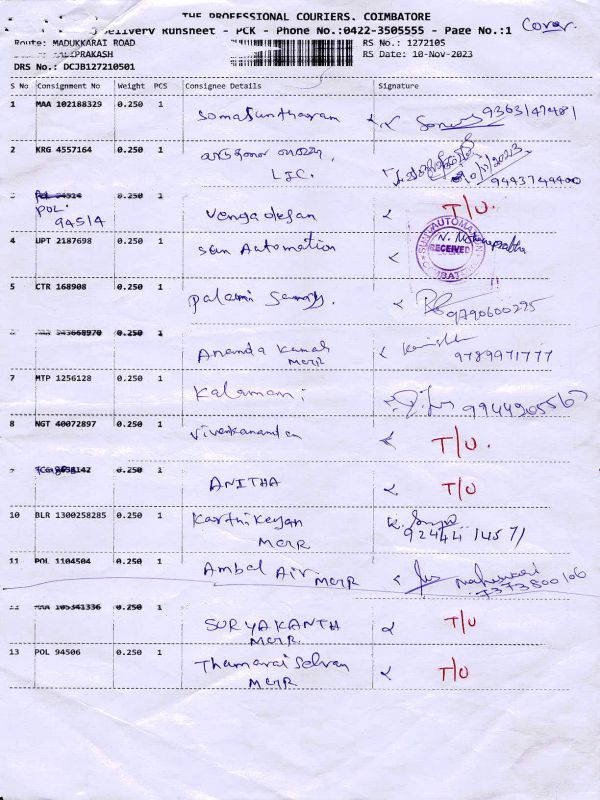 THE PROFESSIONAL COURIERS. COIMBATORE
Delivery Runsheet - PCK - Phone No.:0422-3505555 - Page No.:1
Cover
Route: MADUKKARAI ROAD RS No.: 1272105
RS Date: 10-Nov-2023
DRS No.: DCJB127210501
S No Consignment No Weight PCS Consignee Details Signature
1 MAA 102188329 0.250 1 Somasuntharam 9363147481
2 KRG 4557164 0.250 1
LIC. 10/11/2023
9443744400
POL 94514 0.250 1
POL. 94514 Vengadesan T/U.
4 UPT 2187698 0.250 1 Sun Automation
SUN AUTOMATION RECEIVED COIMBATORE
5 CTR 168908 0.250 1 Palani Samy. 9790600295
0.250 1 Ananda Kumar 9789971777
7 MTP 1256128 0.250 1 Kalamani 9944905567
8 NGT 40072897 0.250 1 Vivekanandan T/U.
0.250 1 ANITHA T/U
10 BLR 1300258285 0.250 1 Karthikeyan
92444 14571
11 POL 1104504 0.250 1 Ambal Air Maheswari
7373800106
MAA 105341336 0.250 1 SURYAKANTH T/U
13 POL 94506 0.250 1 Thamarai Selvan T/U